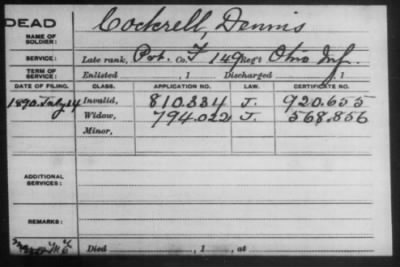 DEAD
Cockrell, Dennis
NAME OF SOLDIER:
SERVICE: Late rank, Pvt. Co. F 149 Reg't Ohio Inf.
TERM OF SERVICE: Enlisted , 1 Discharged , 1
DATE OF FILING. CLASS. APPLICATION NO. LAW. CERTIFICATE NO.
1890. July 14 Invalid, 810.884 J. 920.655
Widow, 794.022 J. 568.856
Minor,
ADDITIONAL SERVICES:
REMARKS:
Died , 1 , at